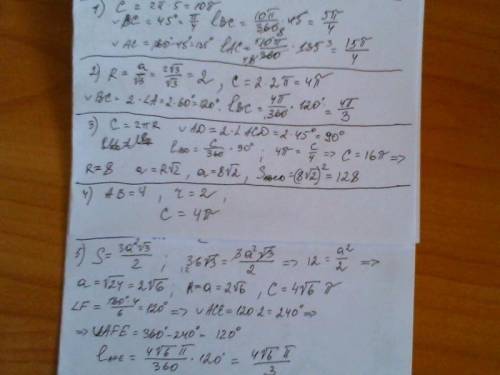 1) C = 2π·5 = 10π
∪BC = 45° = π/4 lBC = 10π/360 · 45 = 5π/4
∪AC = 180°-45=135° lAC = 10π/360 · 135 = 15π/4
2) R = a/√3 = 2√3/√3 = 2, C = 2·2π = 4π
∪BC = 2·∠A = 2·60° = 120°. lBC = 4π/360 · 120° = 4π/3
3) C = 2πR ∪AD = 2·∠ACD = 2·45° = 90°
= C/360 · 90° ; 4π = C/4 => C = 16π =>
R=8 a = R√2, a = 8√2, = (8√2)² = 128
4) AB = 4, r = 2,
C = 4π
5) S = 3a²√3/2 ; 36√3 = 3a²√3/2 => 12 = a²/2 =>
a = √24 = 2√6 ; R = a = 2√6, C = 4√6 π
∠F = 180°·4/6 = 120° => ∪ACE = 120·2 = 240° =>
=> ∪AFE = 360° - 240° - 120°
= 4√6 π/360 · 120° = 4√6 π/3